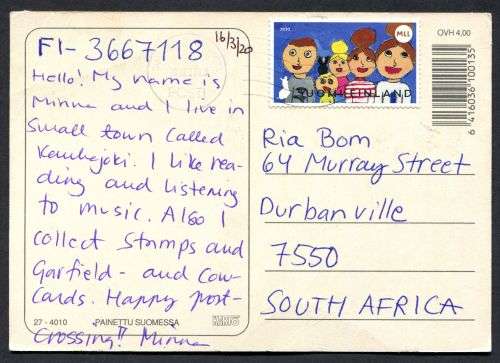 16/3/20
FI-3667118
Hello! My name is
Minna and I live in
small town called
Kauhajoki. I like rea-
ding and listening
to music. Also I
collect stamps and
Garfield- and Cow-
cards. Happy post-
crossing!! Minna
27 - 4010 PAINETTU SUOMESSA
MLL
SUOMI FINLAND
OVH 4,00
6 416036 100135
Ria Bom
64 Murray Street
Durbanville
7550
SOUTH AFRICA